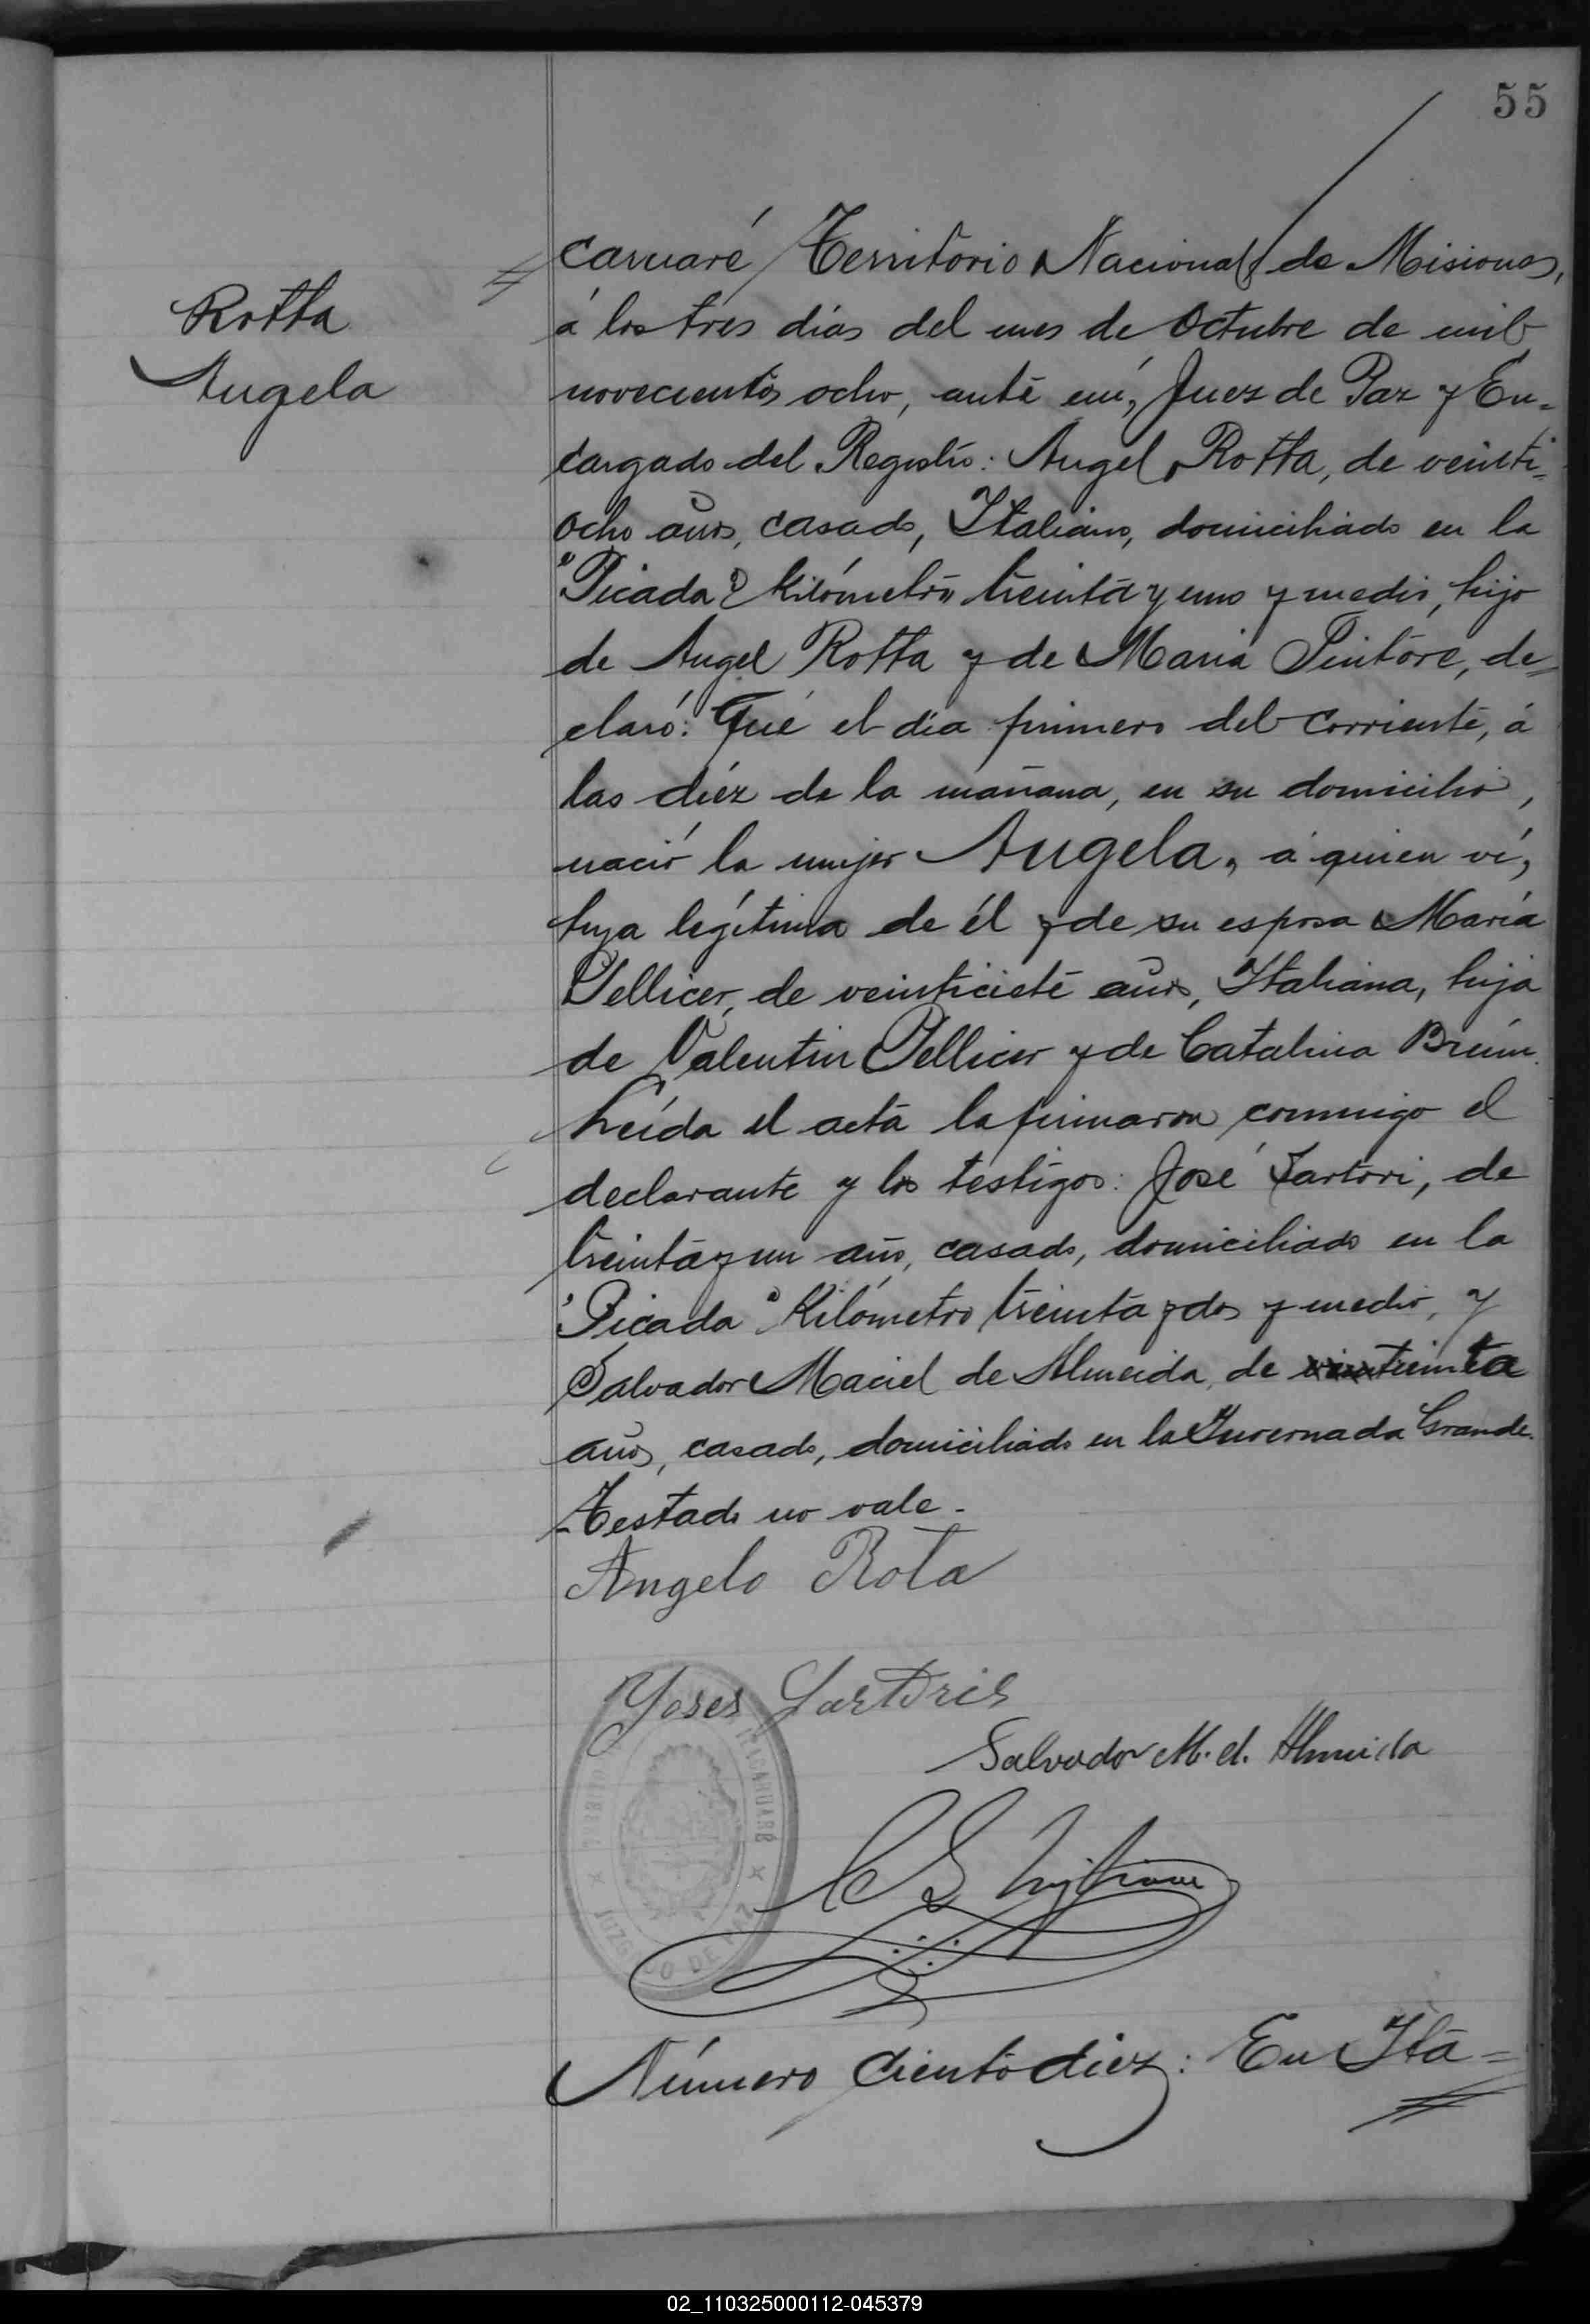 55
Rotta
Angela
caruaré Territorio Nacional de Misiones,
á los tres días del mes de Octubre de mil
novecientos ocho, ante mí, Juez de Paz y En=
cargado del Registro: Angel Rotta, de veinti=
ocho años, casado, Italiano, domiciliado en la
"Picada" kilómetro treinta y uno y medio, hijo
de Angel Rotta y de María Pintore, de=
claró: Que el día primero del corriente, á
las diéz de la mañana, en su domicilio,
nació la mujer Angela, á quien ví,
hija legítima de él y de su esposa María
Pellicer, de veinticiete años, Italiana, hija
de Valentin Pellicer y de Catalina
Leída el acta la firmaron conmigo el
declarante y los testigos: José Sartori, de
treinta y un año, casado, domiciliado en la
"Picada" Kilómetro treinta y dos y medio, y
Salvador Maciel de Almeida, de treinta
años, casado, domiciliado en la Invernada Grande.
Testado no vale.
Angelo Rota
Yoses Sartoris
Salvador M. d. Almeida
ITACARUARÉ
JUZGADO DE PAZ
Número ciento diez: En Ita=
02_110325000112-045379